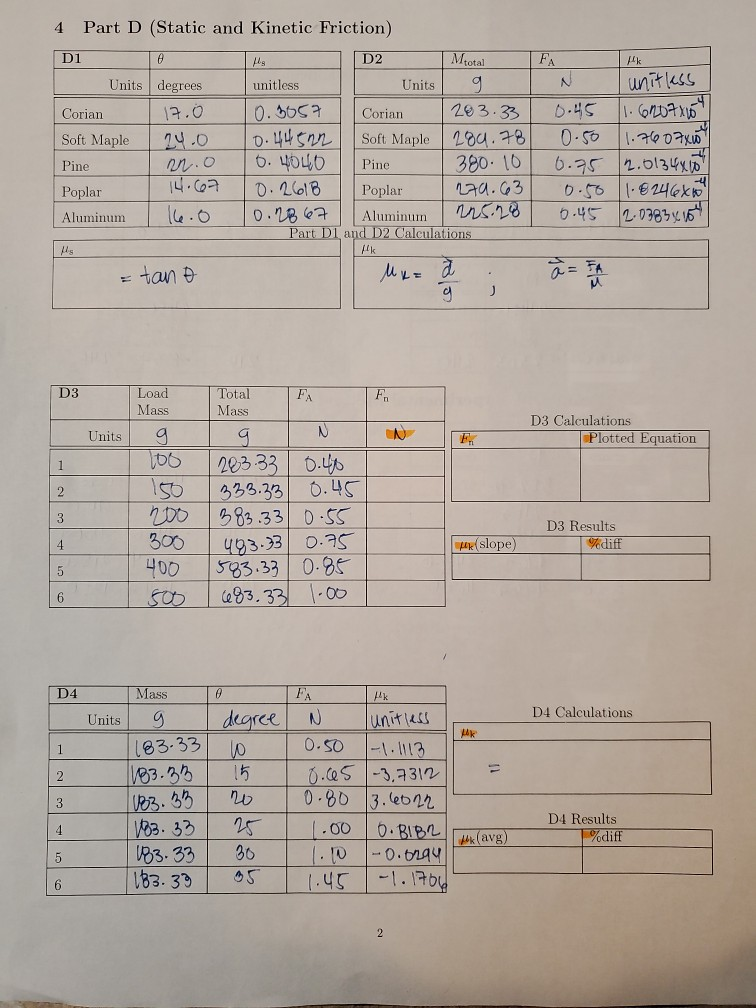 4 Part D (Static and Kinetic Friction)
D1 θ μs
Units degrees unitless
Corian 17.0 0.3057
Soft Maple 24.0 0.44522
Pine 22.0 0.4040
Poplar 14.67 0.2618
Aluminum 16.0 0.2867
D2 Mtotal FA μk
Units g N unitless
Corian 283.33 0.45 1.6207x10⁻⁴
Soft Maple 289.78 0.50 1.7607x10⁻⁴
Pine 380.10 0.75 2.0134x10⁻⁴
Poplar 279.63 0.50 1.8246x10⁻⁴
Aluminum 225.28 0.45 2.0383x10⁻⁴
Part D1 and D2 Calculations
μs
= tan θ
μk
μk = a⃗/g ; a⃗ = FA/M
D3 Load Mass Total Mass FA Fn
Units g g N N
1 100 283.33 0.40
2 150 333.33 0.45
3 200 383.33 0.55
4 300 483.33 0.75
5 400 583.33 0.85
6 500 683.33 1.00
D3 Calculations
Fn Plotted Equation
D3 Results
μk(slope) %diff
D4 Mass θ FA μk
Units g degree N unitless
1 183.33 10 0.50 -1.1113
2 183.33 15 0.65 -3.7312
3 183.33 20 0.80 3.6022
4 183.33 25 1.00 0.8182
5 183.33 30 1.10 -0.0294
6 183.33 35 1.45 -1.1706
D4 Calculations
μk
=
D4 Results
μk(avg) %diff
2